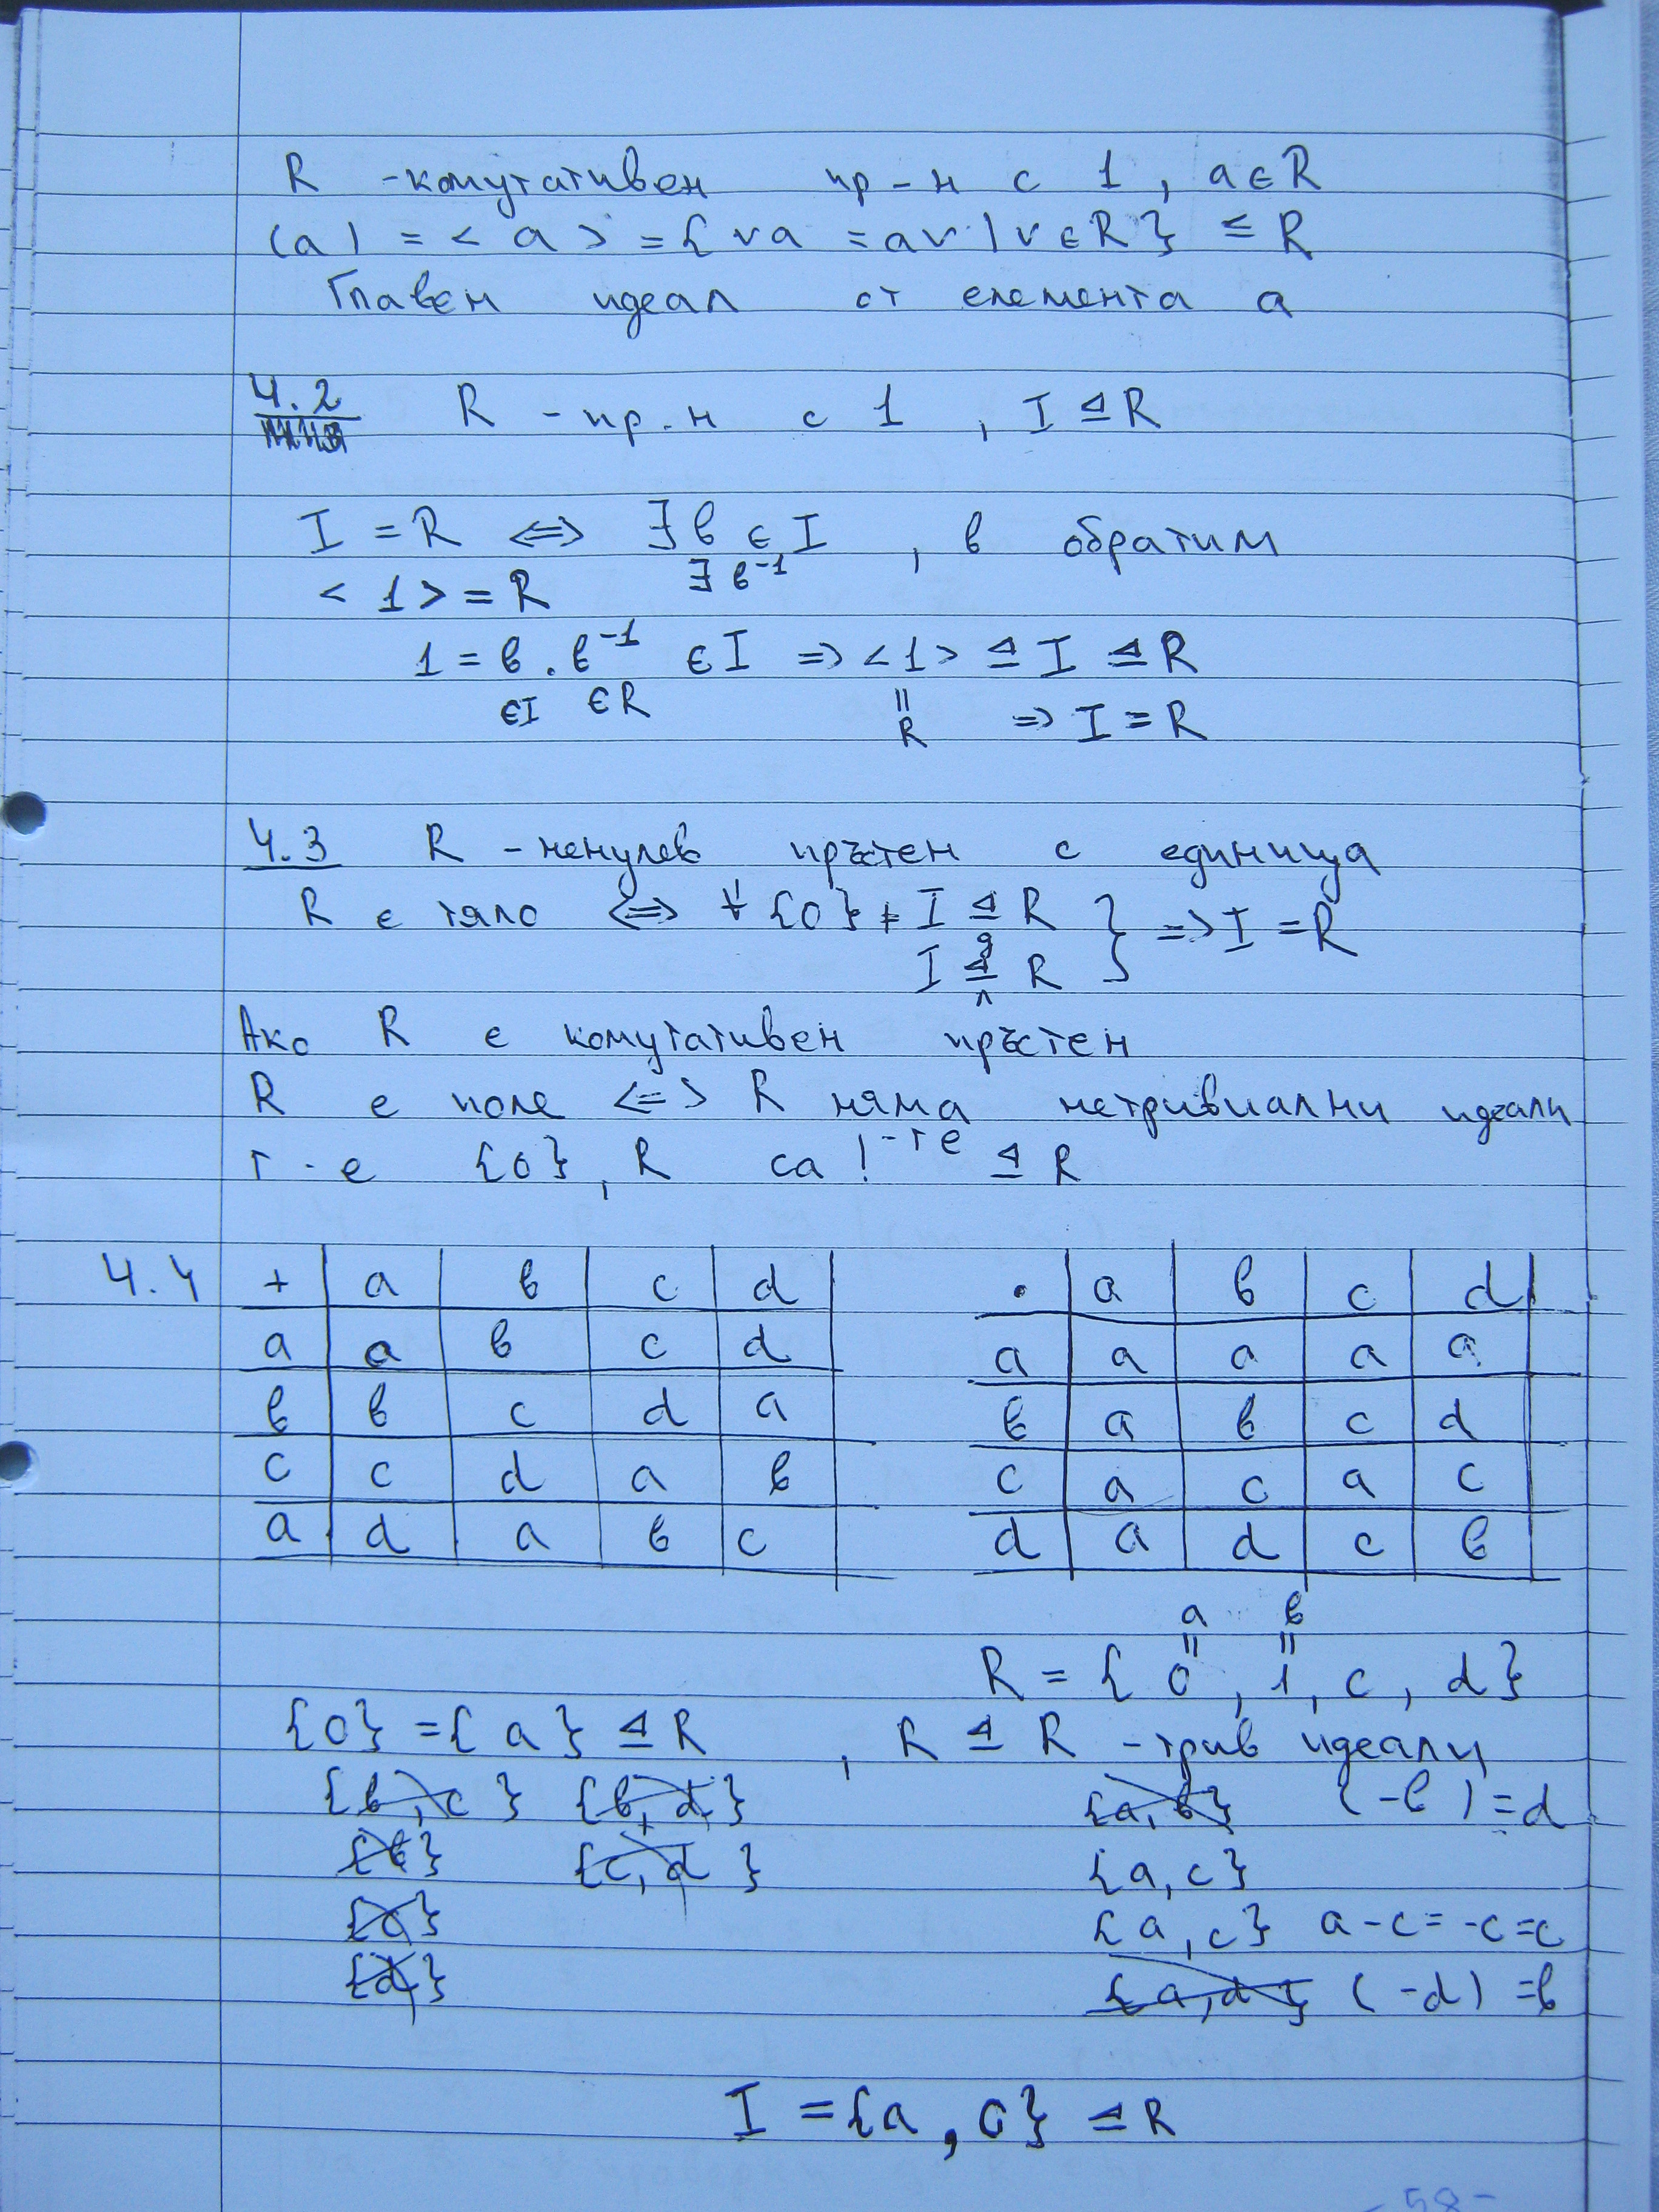 R - комутативен пр-н с 1, a ∈ R
(a) = < a > = { ra = ar | r ∈ R } ≤ R
Главен идеал от елемента a
4.2 R - пр.н с 1, I ⊴ R
I = R <=> ∃ в ∈ I, в обратим
< 1 > = R ∃ в⁻¹
1 = в . в⁻¹ ∈ I => < 1 > ⊴ I ⊴ R
∈I ∈R || R => I = R
4.3 R - ненулев пръстен с единица
R е тяло <=> ∀ {0} ≠ I ⊴ R } => I = R
I ⊴ R
Ако R е комутативен пръстен
R е поле <=> R няма нетривиални идеали
т-е {0}, R са !-те ⊴ R
4.4 + | a | в | c | d | . | a | в | c | d |
a | a | в | c | d | a | a | a | a | a
в | в | c | d | a | в | a | в | c | d
c | c | d | a | в | c | a | c | a | c
a | d | a | в | c | d | a | d | c | в
a в
|| ||
R = { 0, 1, c, d }
{0} = { a } ⊴ R, R ⊴ R - трив идеали
{в, c} {в, d} {a, в} (-в) = d
{в} {c, d} {a, c}
{c} {a, c} a - c = -c = c
{d} {a, d} (-d) = в
I = {a, c} ⊴ R
- 58 -